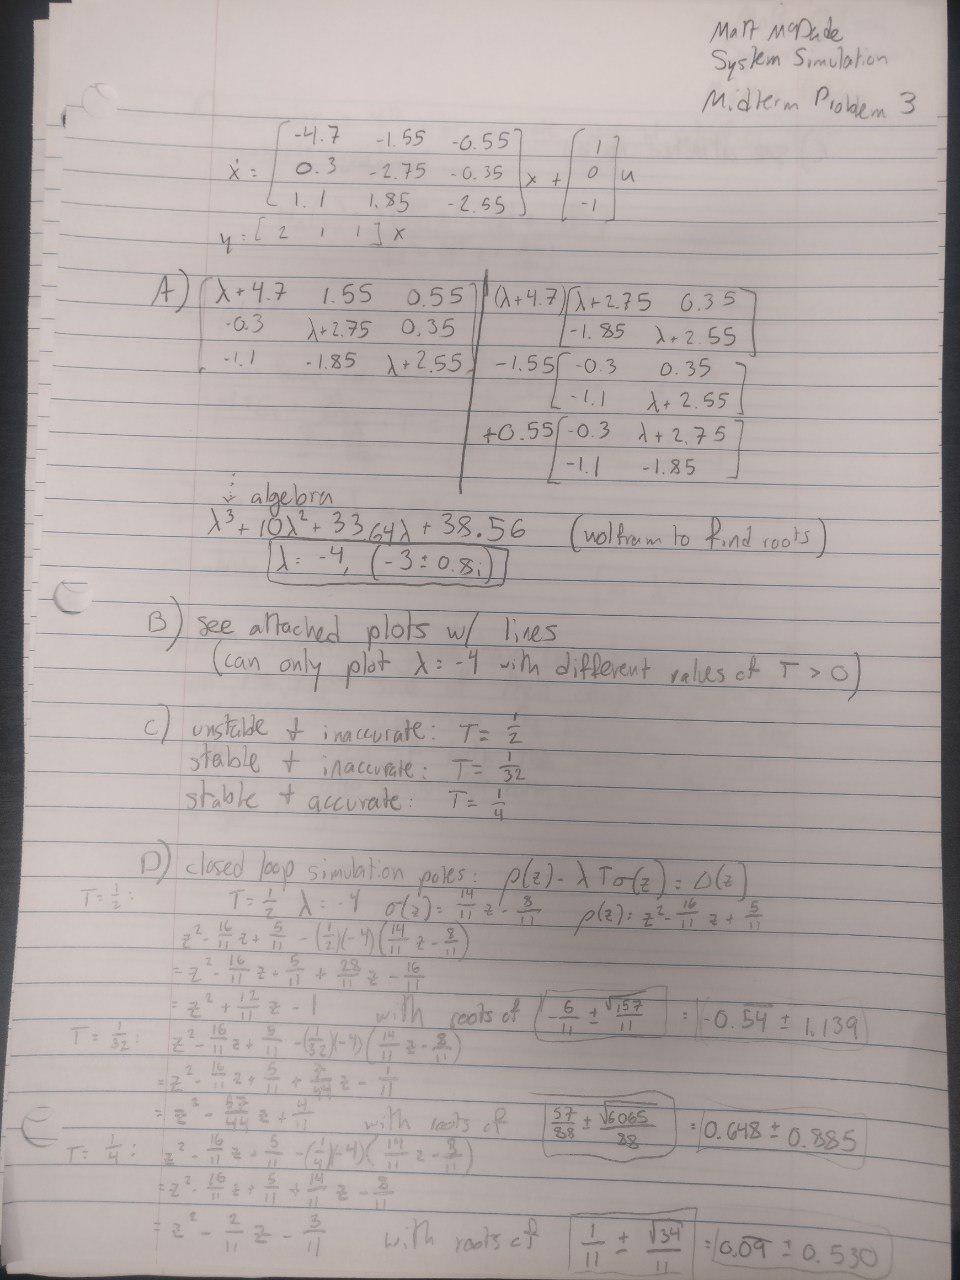 Matt McDade
System Simulation
Midterm Problem 3
ẋ = [ -4.7 -1.55 -0.55
0.3 -2.75 -0.35
1.1 1.85 -2.55 ] x + [ 1 0 -1 ] u
y = [ 2 1 1 ] x
A) [ λ+4.7 1.55 0.55
-0.3 λ+2.75 0.35
-1.1 -1.85 λ+2.55 ]
(λ+4.7) [ λ+2.75 0.35
-1.85 λ+2.55 ]
-1.55 [ -0.3 0.35
-1.1 λ+2.55 ]
+0.55 [ -0.3 λ+2.75
-1.1 -1.85 ]
⋮ algebra
λ³ + 10λ² + 33.64λ + 38.56 (wolfram to find roots)
λ = -4, (-3 ± 0.8i)
B) see attached plots w/ lines
(can only plot λ = -4 with different values of T > 0)
C) unstable + inaccurate: T = 1/2
stable + inaccurate: T = 1/32
stable + accurate: T = 1/4
D) closed loop simulation poles: ρ(z) - λTσ(z) = Δ(z)
T = 1/2: T = 1/2 λ = -4 σ(z) = 14/11 z - 8/11 ρ(z) = z² - 16/11 z + 5/11
z² - 16/11 z + 5/11 - (1/2)(-4)(14/11 z - 8/11)
= z² - 16/11 z + 5/11 + 28/11 z - 16/11
= z² + 12/11 z - 1 with roots of -6/11 ± √157/11 = -0.54 ± 1.139
T = 1/32: z² - 16/11 z + 5/11 - (1/32)(-4)(14/11 z - 8/11)
= z² - 16/11 z + 5/11 + 7/44 z - 1/11
= z² - 57/44 z + 4/11 with roots of 57/88 ± √6065/88 = 0.648 ± 0.885
T = 1/4: z² - 16/11 z + 5/11 - (1/4)(-4)(14/11 z - 8/11)
= z² - 16/11 z + 5/11 + 14/11 z - 8/11
= z² - 2/11 z - 3/11 with roots of 1/11 ± √34/11 = 0.09 ± 0.530